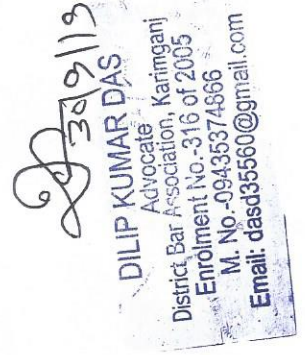 30/9/19
DILIP KUMAR DAS
Advocate
District Bar Association, Karimganj
Enrolment No.-316 of 2005
M. No.-09435374866
Email: dasd35560@gmail.com